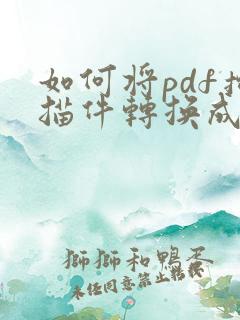 如何将pdf扫
描件轉換成
獅獅和鴨蛋
未经同意禁止转楼